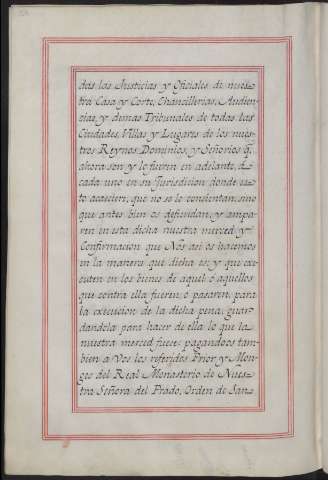 das las Justicias y Oficiales de nues-
tra Casa y Corte, Chancillerias, Audien-
cias, y demas Tribunales de todas las
Ciudades, Villas y Lugares de los nues-
tros Reynos, Dominios, y Señorios q.
ahora son y lo fueren en adelante, á
cada uno en su Jurisdicion donde es-
to acaeciere, que no se lo consientan: sino
que antes bien os defiendan, y ampa-
ren en esta dicha nuestra merced y
Confirmacion que Nos asi os hacemos
en la manera que dicha es; y que exe-
cuten en los bienes de aquel ó aquellos
que contra ella fueren, o pasaren, para
la execucion de la dicha pena; guar-
dandola para hacer de ella lo que la
nuestra merced fuere: pagandoos tam-
bien a Vos los referidos Prior, y Mon-
ges del Real Monasterio de Nues-
tra Señora del Prado, Orden de San